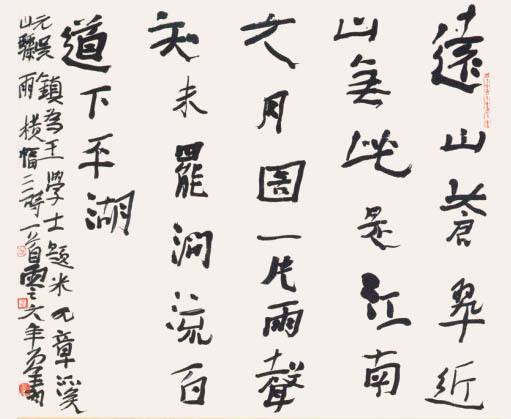 遠山蒼翠近
山無此是江南
六月圖一片雨聲
知未罷澗流百
道下平湖
元吳鎮為王學士題米元章溪
山驟雨橫幅二時一首零六年